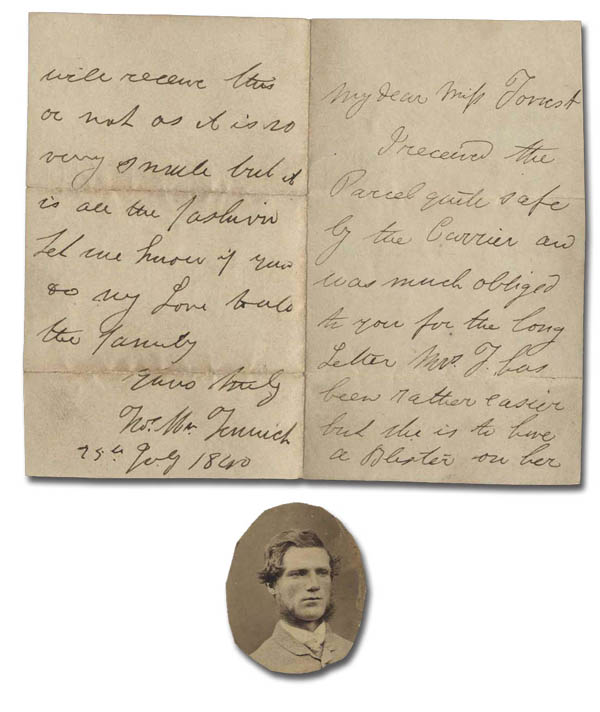 My dear Miss Forrest
I received the
Parcel quite safe
by the Carrier and
was much obliged
to you for the long
Letter Mrs. F. has
been rather easier
but she is to have
a Blister on her
will receive this
or not as it is so
very small but it
is all the fashion
Let me know if you
do my Love to all
the family
yours truly
Fenwick
July 1840